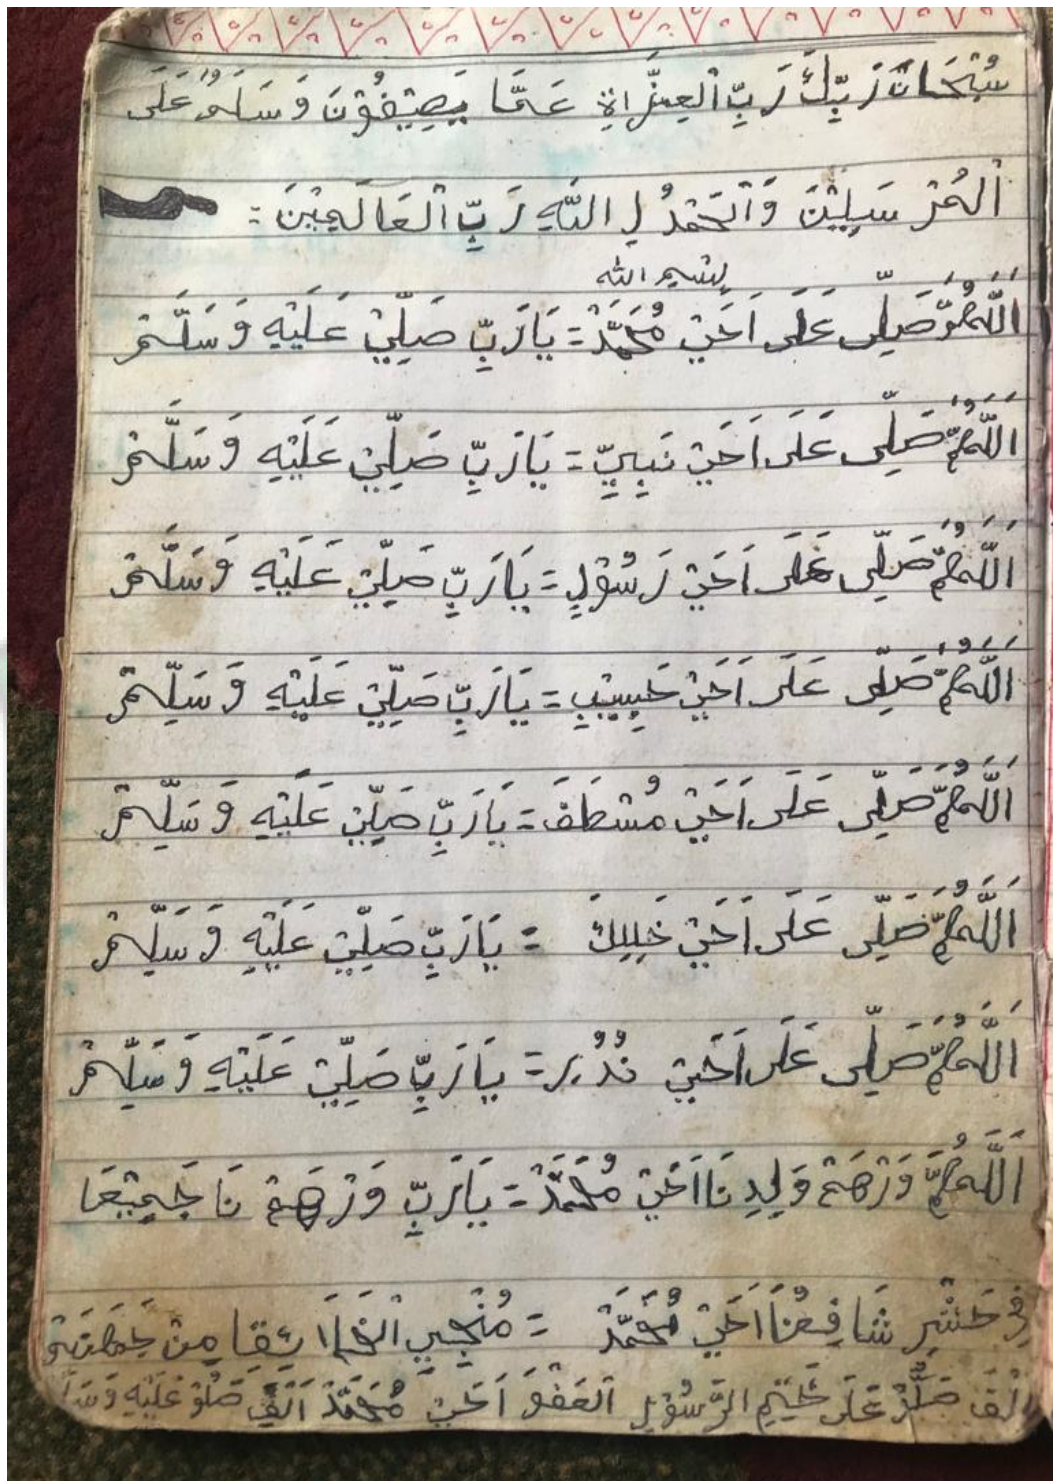 سُبْحَانَ رَبِّكَ رَبِّ الْعِزَّاةِ عَمَّا يَصِيفُوْنَ وَسَلَمُ عَلَى
اَلْمُرْسَلِيْنَ وَالْحَمْدُ لِ اللَّهِ رَبِّ الْعَالَمِيْنَ =
بسم الله
اَللَّهُمَّ صَلِّى عَلَى اَخَيْ مُحَمَّدْ = يَا رَبِّ صَلِّيْ عَلَيْهِ وَسَلَّمْ
اَللَّهُمَّ صَلِّى عَلَى اَخَيْ نَبِيِّ = يَا رَبِّ صَلِّيْ عَلَيْهِ وَسَلَّمْ
اَللَّهُمَّ صَلِّى عَلَى اَخَيْ رَسُوْلِ = يَا رَبِّ صَلِّيْ عَلَيْهِ وَسَلَّمْ
اَللَّهُمَّ صَلِّى عَلَى اَخَيْ حَبِيْبِ = يَا رَبِّ صَلِّيْ عَلَيْهِ وَسَلِّمْ
اَللَّهُمَّ صَلِّى عَلَى اَخَيْ مُسْطَفَ = يَا رَبِّ صَلِّيْ عَلَيْهِ وَسَلِّمْ
اَللَّهُمَّ صَلِّى عَلَى اَخَيْ خَلِلِكَ = يَا رَبِّ صَلِّيْ عَلَيْهِ وَسَلِّمْ
اَللَّهُمَّ صَلِّى عَلَى اَخَيْ نُدُرِ = يَا رَبِّ صَلِّيْ عَلَيْهِ وَسَلِّمْ
اَللَّهُمَّ وَرْهَمْ وَلِدِنَا اَخَيْ مُحَمَّدْ = يَا رَبِّ وَرْهَمْ نَا جَمِيْعَا
فِ حَشْرِ شَافِعُنَا اَخَيْ مُحَمَّدْ = مُنْجِيِ الْخَلَائِقَا مِنْ جَهَنَمْ
اَلْفَ صَلُّوْ عَلَى خَيْمِ الرَّسُوْلِ الْعَفْوَ اَخَيْ مُحَمَّدْ اَلْفَ صَلُوْ عَلَيْهِ